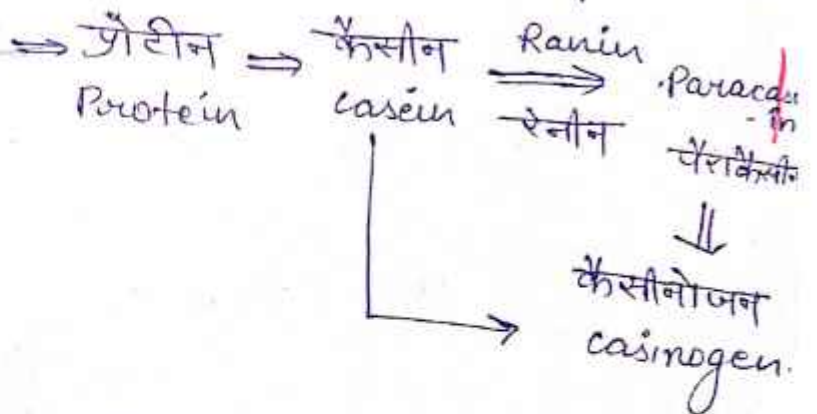 ⇒ प्रोटीन ⇒ कैसीन Ranin ⇒ Paracase
Protein casein रेनीन - in
पैराकैसीन
⇓
कैसीनोजन
casinogen.